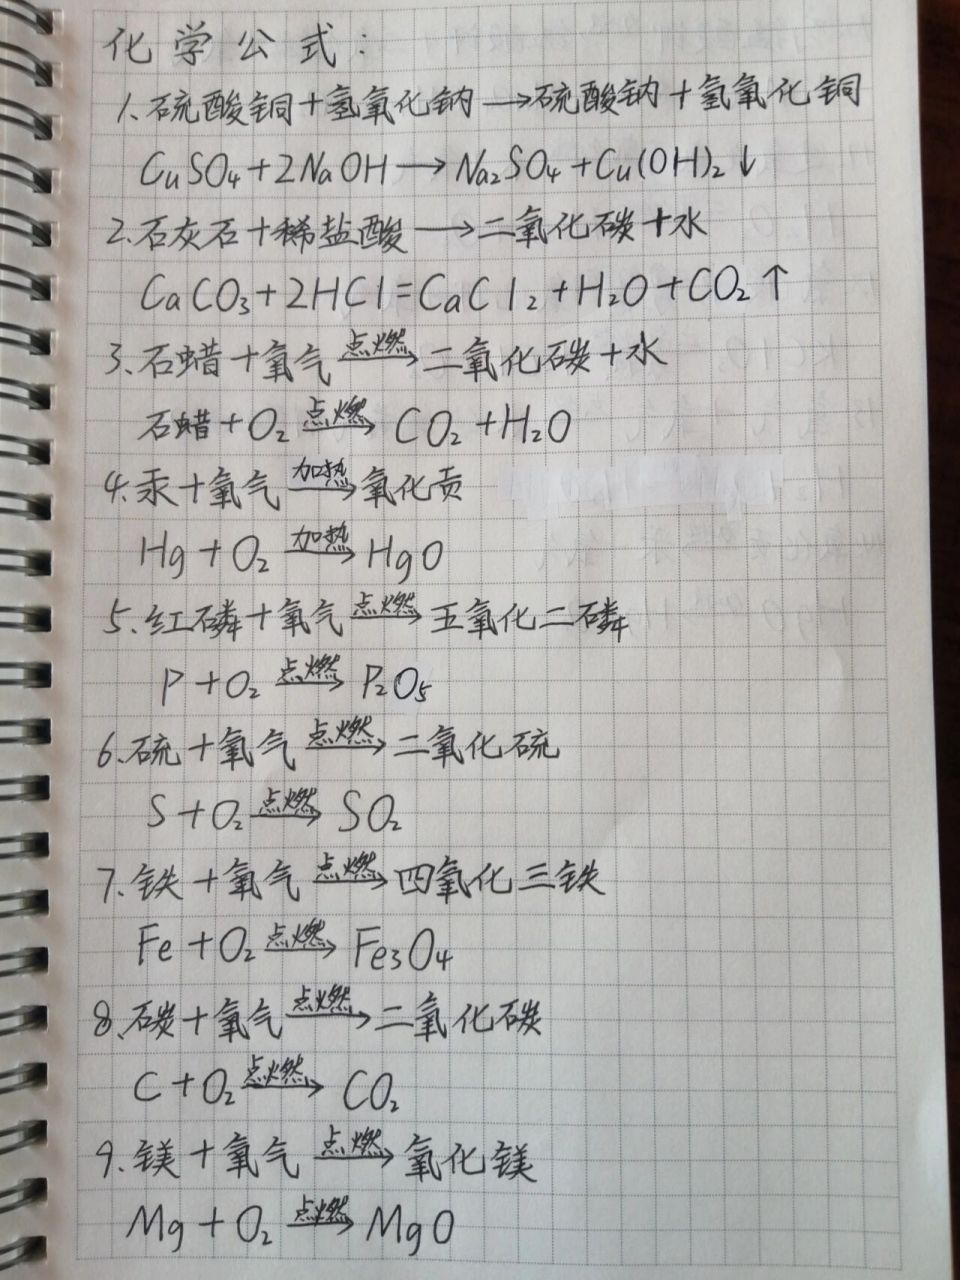 化学公式:
1、硫酸铜+氢氧化钠→硫酸钠+氢氧化铜
CuSO₄+2NaOH→Na₂SO₄+Cu(OH)₂↓
2、石灰石+稀盐酸→二氧化碳+水
CaCO₃+2HCl=CaCl₂+H₂O+CO₂↑
3、石蜡+氧气 点燃→ 二氧化碳+水
石蜡+O₂ 点燃→ CO₂+H₂O
4、汞+氧气 加热→ 氧化贡
Hg+O₂ 加热→ HgO
5、红磷+氧气 点燃→ 五氧化二磷
P+O₂ 点燃→ P₂O₅
6、硫+氧气 点燃→ 二氧化硫
S+O₂ 点燃→ SO₂
7、铁+氧气 点燃→ 四氧化三铁
Fe+O₂ 点燃→ Fe₃O₄
8、碳+氧气 点燃→ 二氧化碳
C+O₂ 点燃→ CO₂
9、镁+氧气 点燃→ 氧化镁
Mg+O₂ 点燃→ MgO